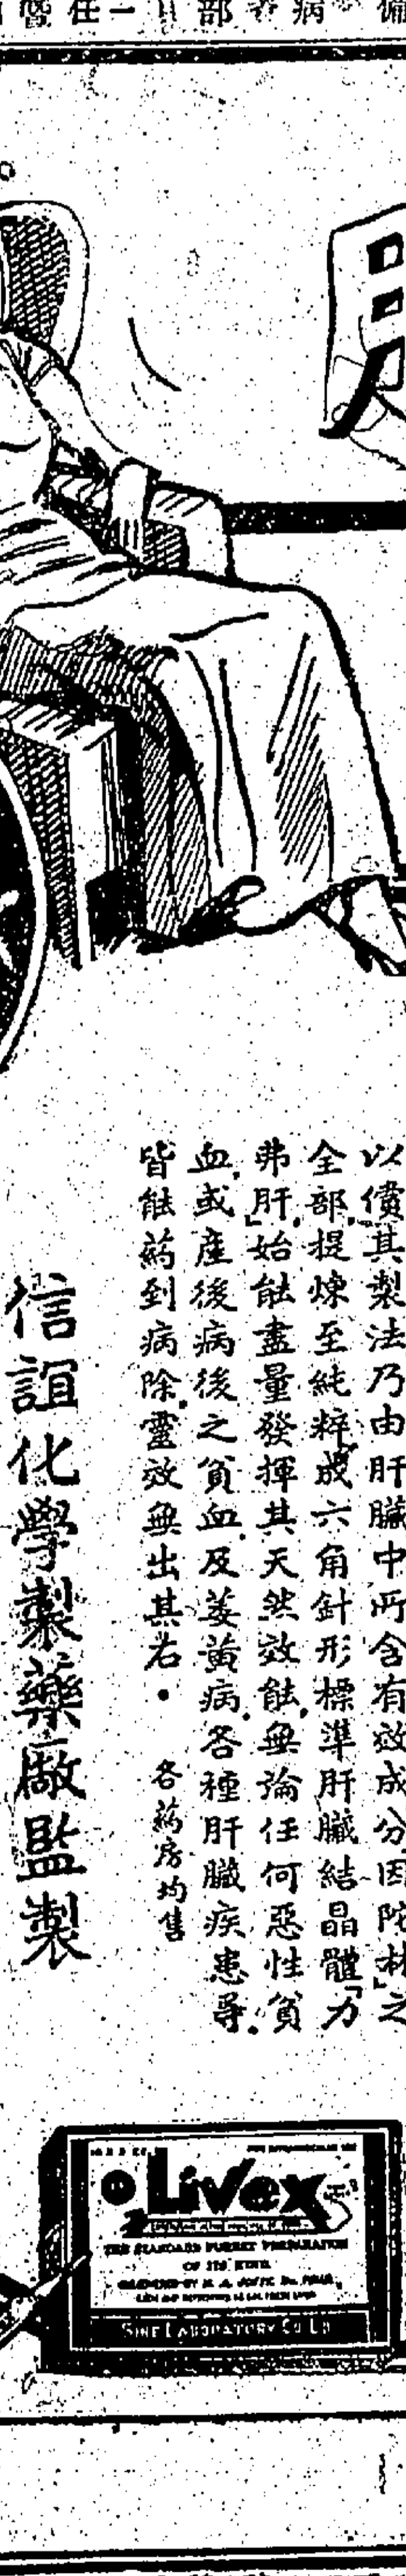 部
病
任
以償其製法乃由肝臟中所含有效成分「因陀林」之
全部提煉至純粹成六角針形標準肝臟結晶體「力
弗肝」始能盡量發揮其天然效能無論任何惡性貧
血或產後病後之貧血及萎黃病各種肝臟疾患等
皆能药到病除靈效無出其右・
各药房均售
信誼化學製藥廠監製
Livex
THE STANDARD PUREST PREPARATION
OF ITS KIND
SINE LABORATORY CO LD